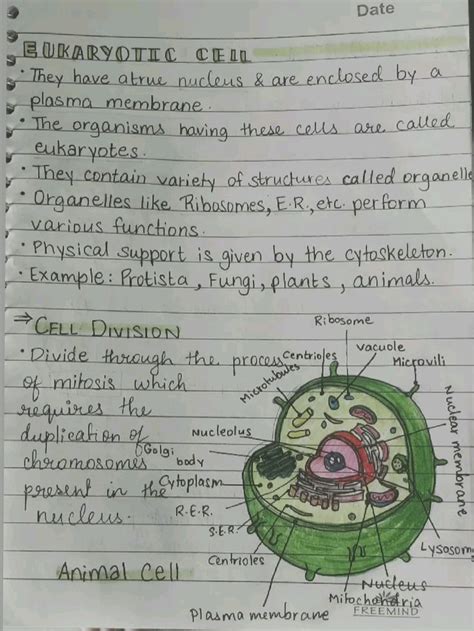 Date
EUKARYOTIC CELL
• They have a true nucleus & are enclosed by a
plasma membrane.
• The organisms having these cells are called
eukaryotes.
• They contain variety of structures called organelle
• Organelles like Ribosomes, E.R., etc. perform
various functions.
• Physical support is given by the cytoskeleton.
• Example: Protista, Fungi, plants, animals.
⇒ CELL DIVISION
• Divide through the process
of mitosis which
requires the
duplication of
chromosomes
present in the
nucleus.
Animal Cell
Ribosome
Centrioles
vacuole
Microvili
Microtubules
Nucleolus
Nuclear membrane
Golgi
body
Cytoplasm
R.E.R.
S.E.R.
Centrioles
Lysosom
Nucleus
Mitochondria
Plasma membrane
FREEMIND